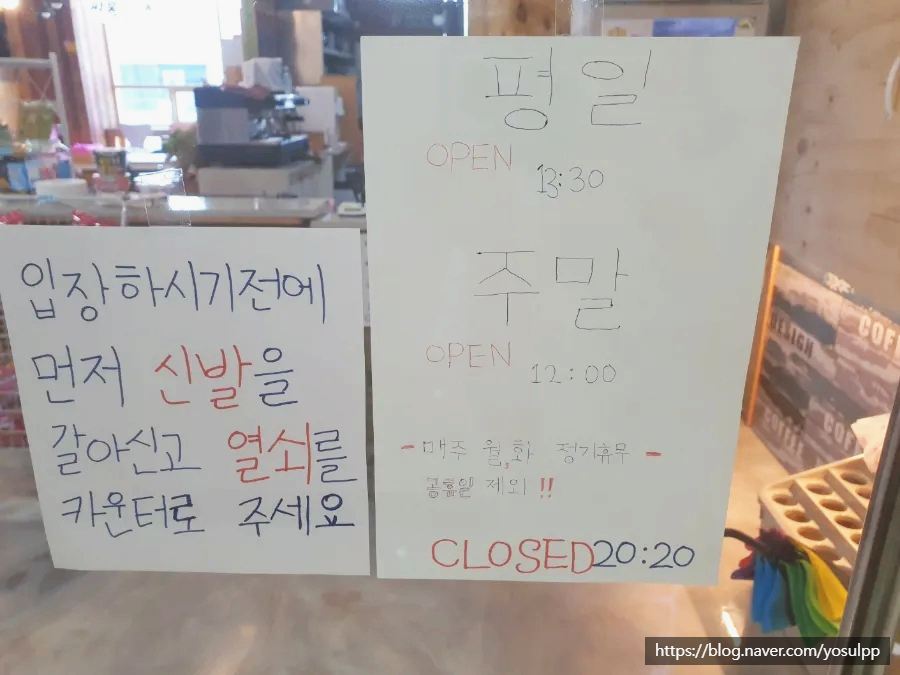 입장하시기전에
먼저 신발을
갈아신고 열쇠를
카운터로 주세요
평일
OPEN
13:30
주말
OPEN
12:00
- 매주 월,화 정기휴무 -
공휴일 제외 !!
CLOSED 20:20
DESIGN
COFFEE
https://blog.naver.com/yosulpp